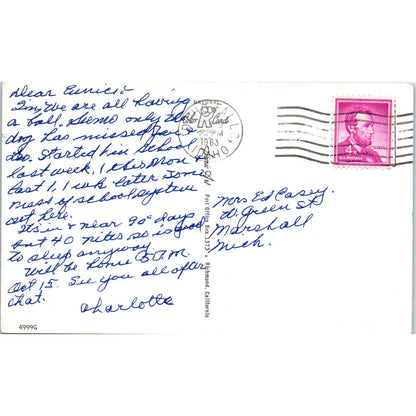 Dear Eunice:-
I'm, We are all having
a ball. only the
dog has missed
Started in school
last week, 1 this
last 1, 1 wk later some
mess of school system
out here.
It's in & near 90° days
but 40 nites so is good
to sleep anyway.
Will be home 5 A.M.
Oct 15. See you all after
that.
Charlotte
4999G
1963
IDAHO
Post Office Box 1373 Richmond, California
4¢
U.S. POSTAGE
Mrs Ed Casey
W. Green St.
Marshall
Mich.